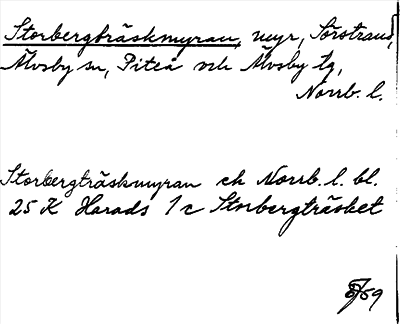 Storbergträskmyran, myr, Sörstrand,
Älvsby sn, Piteå och Älvsby tg,
Norrb. l.
Storbergträskmyran ek Norrb. l. bl.
25 K Harads 1 c Storbergträsket
59